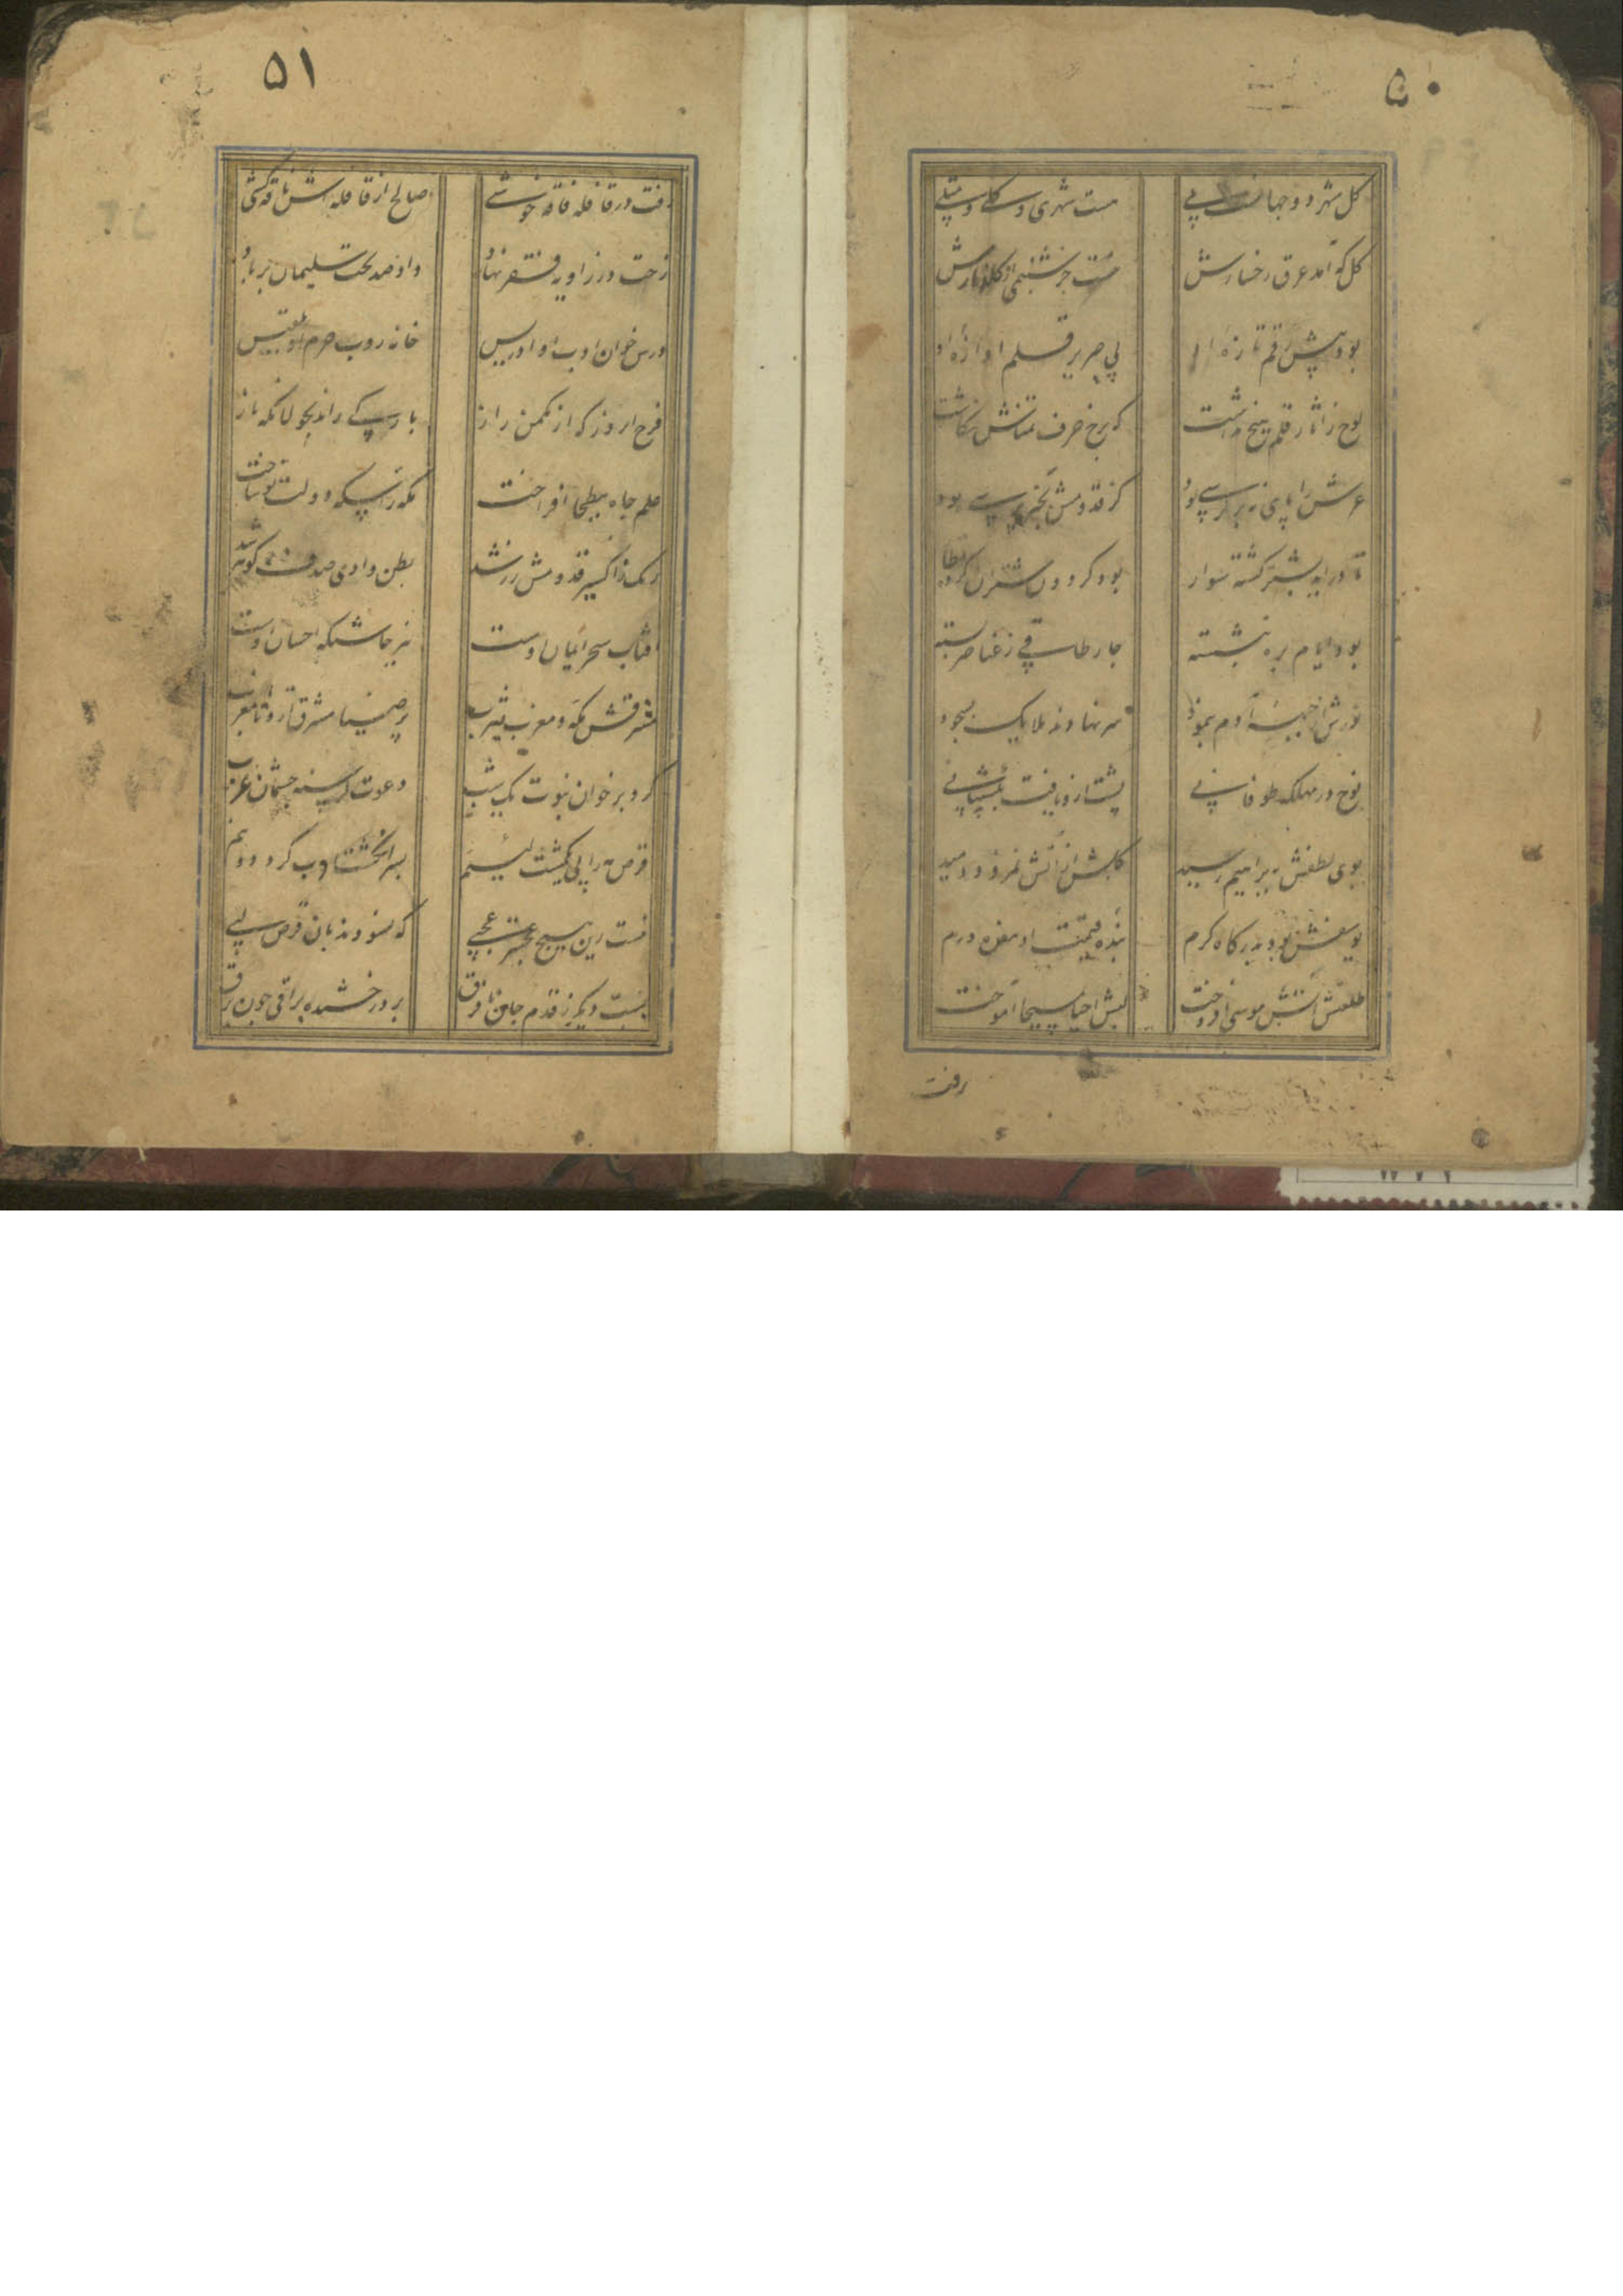 ۵۰
هست شهری و مکی و
گل کو آمد عرق رخسارش هست جز شبنمی از گلزارش
بود پیش رقم تازه او بی صریر قلم آوازه او
لوح ز آثار قلم هیچ نداشت که برخ حرف تمناش نگاشت
عرش را پای نه بر کرسی بود کز قدومش بخبر پرسی بود
تا درآید بشتر گشته سوار بود گردون شتران کرده قطار
بود ایام بره بنشسته چار طاقی ز عناصر بسته
نورش از جبهه آدم بنمود سر نهادند ملایک بسجود
نوح در مهلکه طوفانی پشت ازو یافت بکشتیبانی
بوی لطفش ببراهیم رسید گلش از آتش نمرود دمید
یوسفش بود بدرگاه کرم بنده قیمت او هفده درم
طلعتش آتش موسی افروخت لبش احیا بمسیحا آموخت
رفت
۵۱
رفت در قافله فاقه خوشی صالح از قافله اش ناقه کشی
رخت در زاویه فقر نهاد داد صد تخت سلیمان بر باد
درس خوان ادب او ادریس خانه روب حرم او بلقیس
فرخ آن روز که از مکمن راز بارگی راند بجولانگه ناز
علم جاه ببطحا افراخت مکه را سکه دولت نو ساخت
ریگ ز اکسیر قدومش زر شد بطن وادی صدف گوهر شد
آفتاب سحر ایمان اوست نیر چاشتگه احسان اوست
مشرقش مکه و مغرب یثرب پر ضیا مشرق ازو تا مغرب
کرد بر خوان نبوت یک شب دعوت گرسنه چشمان عرب
قرص مه را پی یک مشت لئیم بسر انگشت ادب کرد دو نیم
نیست زین هیچ عجبتر عجبی که نبودند بآن قرص لبی
شب دیگر ز قدم جان تا فرق بر درخشنده براقی چون برق